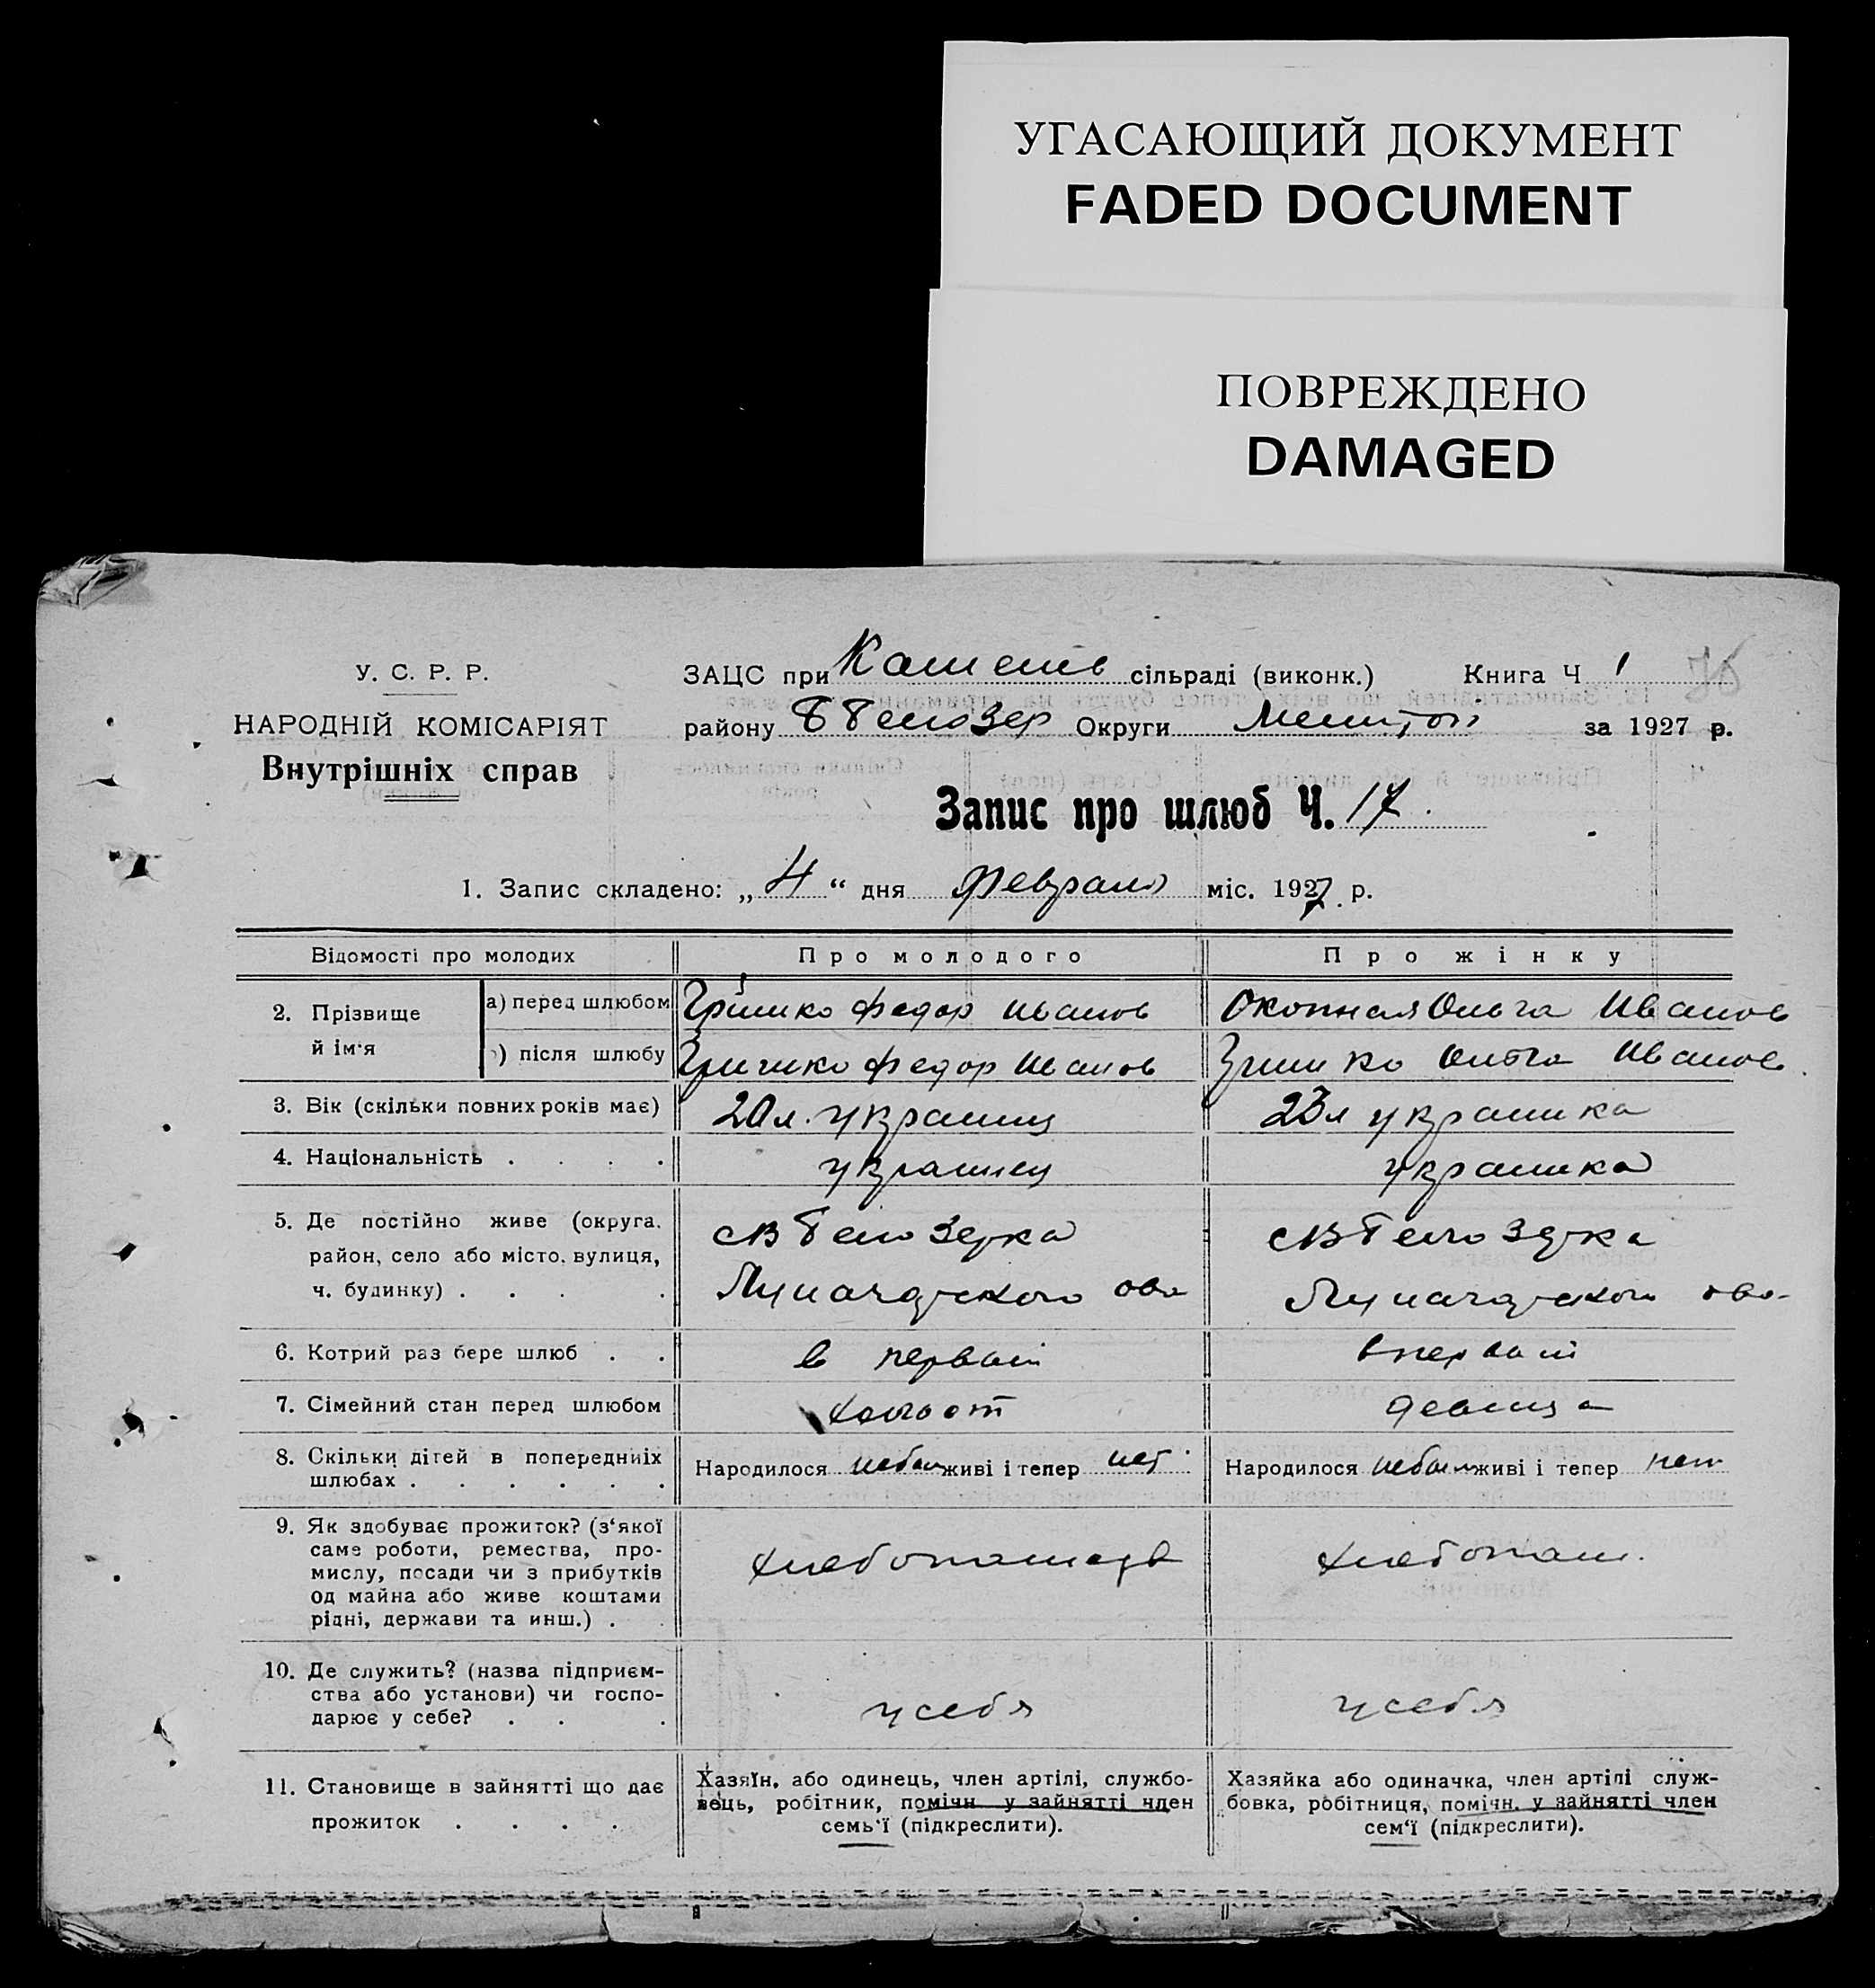 УГАСАЮЩИЙ ДОКУМЕНТ
FADED DOCUMENT
ПОВРЕЖДЕНО
DAMAGED
У. С. Р. Р.
НАРОДНІЙ КОМІСАРІЯТ
Внутрішніх справ
ЗАЦС при сільраді (виконк.) Книга Ч 1
району Округи за 1927 р.
Запис про шлюб Ч. 17.
1. Запис складено: „4“ дня февраля міс. 1927 р.
Відомості про молодих
Про молодого
Про жінку
2. Прізвище й ім'я
а) перед шлюбом
Гришко Федор Иванов
Окопная Ольга Иванов
) після шлюбу
Гришко Федор Иванов
Гришко Ольга Иванов
3. Вік (скільки повних років має)
20 л. украинц
23 л украинка
4. Національність . . . .
украинец
украинка
5. Де постійно живе (округа,
район, село або місто, вулиця,
ч. будинку) . . . .
6. Котрий раз бере шлюб . .
в первый
впервый
7. Сімейний стан перед шлюбом
холост
девица
8. Скільки дітей в попередніх
шлюбах . . . . . .
Народилося небыл живі і тепер нет
Народилося небыл живі і тепер нет
9. Як здобуває прожиток? (з'якої
саме роботи, ремества, про-
мислу, посади чи з прибутків
од майна або живе коштами
рідні, держави та инш.) .
хлебопаш.
10. Де служить? (назва підприєм-
ства або установи) чи госпо-
дарює у себе? . . .
у себя
у себя
11. Становище в зайнятті що дає
прожиток . . . .
Хазяїн, або одинець, член артілі, службо-
вець, робітник, помічн. у зайнятті член
семь'ї (підкреслити).
Хазяйка або одиначка, член артілі служ-
бовка, робітниця, помічн. у зайнятті член
сем'ї (підкреслити).